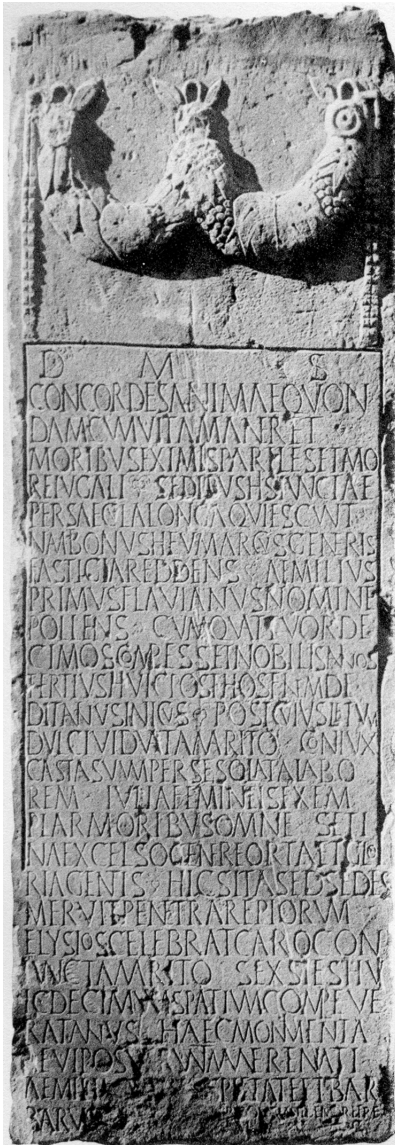 D M S
CONCORDES ANIMAE QVON
DAM CVM VITA MANERET
MORIBVS EXIMIS PARILES ET AMO
RE IVGALI SEDIBVS HIS IVNCTAE
PER SAECLA LONGA QVIESCVNT
BONVS HEV MARCVS GENERIS
FASTIGIA REDDENS AEMILIVS
PRIMVS FLAVIANVS NOMINE
POLLENS CVM QVATTVORDE
CIMOS COMPLESSET NOBILIS ANNOS
TERTIVS HVIC POST HOS FINEM DE
DIT ANVS INICVS POST CVIVS LETVM
DVLCI VIDVATA MARITO CONIVX
CASTA SVM LABO
REM IVLIA FEMINEIS EXEM
PLAR MORIBVS OMNE SETI
NA EXCELSO GENERE ORTA ET GLO
RIA GENTIS HIC SITA SED SEDES
MERVIT PENETRARE PIORVM
ELYSIOS CELEBRAT CARO CON
IVNCTA MARITO SEX
DECIMVM SPATIVM COMPLEVE
RAT ANNVS HAEC MONIMENTA
MVNERE NATI
PIETATE ET BAR
BARVS